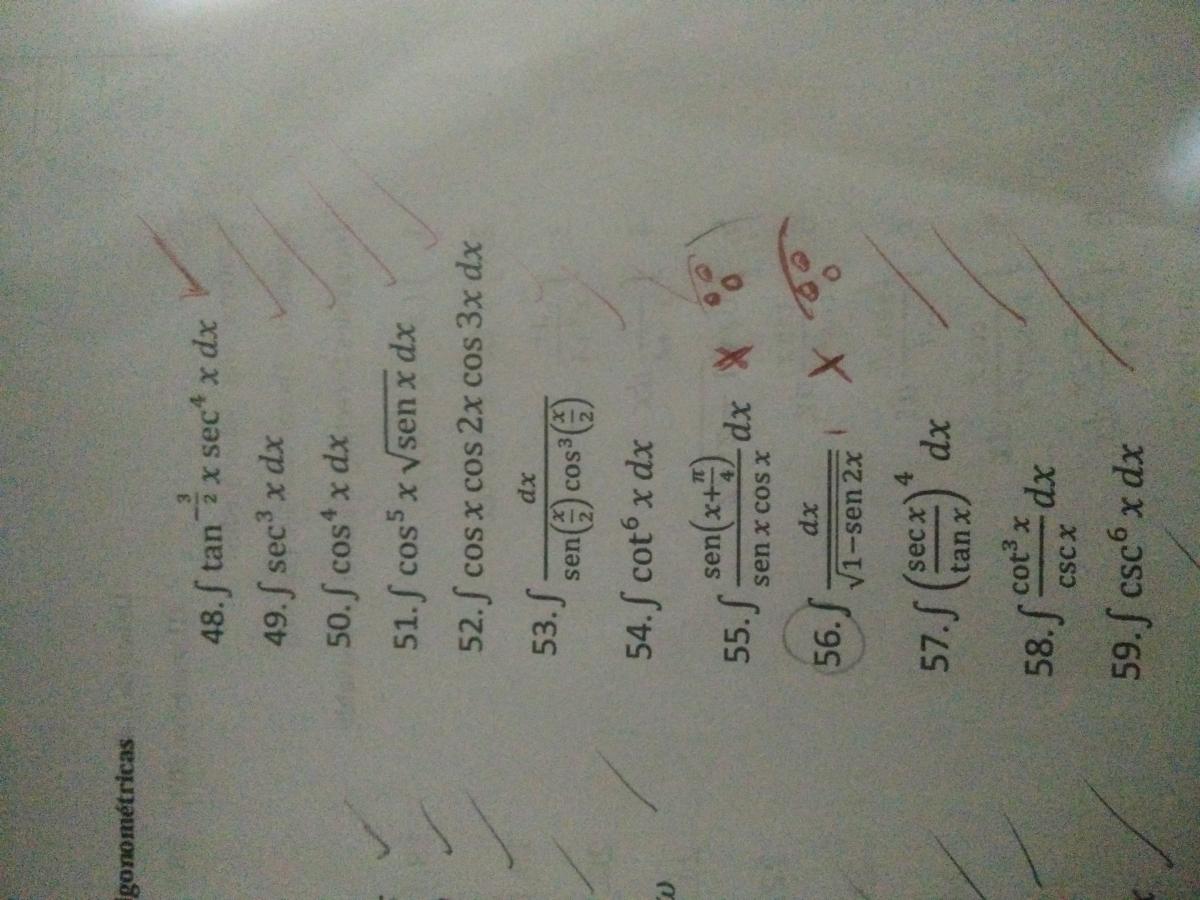 gonométricas
48. ∫ tan^{-3/2} x sec⁴ x dx
49. ∫ sec³ x dx
50. ∫ cos⁴ x dx
51. ∫ cos⁵ x √(sen x) dx
52. ∫ cos x cos 2x cos 3x dx
53. ∫ dx / (sen(x/2) cos³(x/2))
54. ∫ cot⁶ x dx
55. ∫ sen(x+π/4) / (sen x cos x) dx
56. ∫ dx / √(1−sen 2x)
57. ∫ (sec x / tan x)⁴ dx
58. ∫ cot³ x / csc x dx
59. ∫ csc⁶ x dx